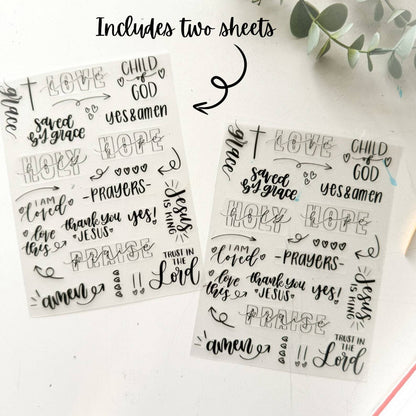 Includes two sheets
grace
LOVE
CHILD
of
GOD
saved
by grace
yes & amen
HOLY HOPE
I AM
Loved
-PRAYERS-
love
this
thank you
JESUS
yes!
Jesus
IS KING
PRAISE
amen
TRUST IN THE
Lord
grace
LOVE
CHILD
of
GOD
saved
by grace
yes & amen
HOLY HOPE
I AM
Loved
-PRAYERS-
love
this
thank you
JESUS
yes!
Jesus
IS KING
PRAISE
amen
TRUST
IN THE
Lord